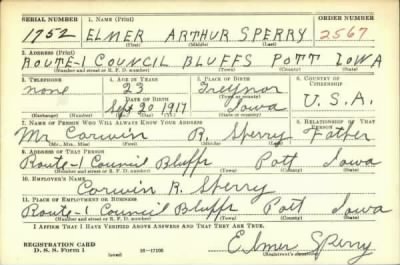 SERIAL NUMBER 1. NAME (Print) ORDER NUMBER
1752 ELMER ARTHUR SPERRY 2567
(First) (Middle) (Last)
2. ADDRESS (Print)
ROUTE-1 COUNCIL BLUFFS POTT IOWA
(Number and street or R. F. D. number) (Town) (County) (State)
3. TELEPHONE 4. AGE IN YEARS 5. PLACE OF BIRTH 6. COUNTRY OF CITIZENSHIP
none 23 Treynor
DATE OF BIRTH (Town or county)
Sept 30 1917 Iowa U.S.A.
(Exchange) (Number) (Mo.) (Day) (Yr.) (State or country)
7. NAME OF PERSON WHO WILL ALWAYS KNOW YOUR ADDRESS 8. RELATIONSHIP OF THAT PERSON
Mr Corwin R. Sperry Father
(Mr., Mrs., Miss) (First) (Middle) (Last)
9. ADDRESS OF THAT PERSON
Route-1 Council Bluffs Pott Iowa
(Number and street or R. F. D. number) (Town) (County) (State)
10. EMPLOYER'S NAME
Corwin R. Sperry
11. PLACE OF EMPLOYMENT OR BUSINESS
Route-1 Council Bluffs Pott Iowa
(Number and street or R. F. D. number) (Town) (County) (State)
I AFFIRM THAT I HAVE VERIFIED ABOVE ANSWERS AND THAT THEY ARE TRUE.
REGISTRATION CARD
D. S. S. Form 1 16-17105 Elmer Sperry
(over) (Registrant's signature)